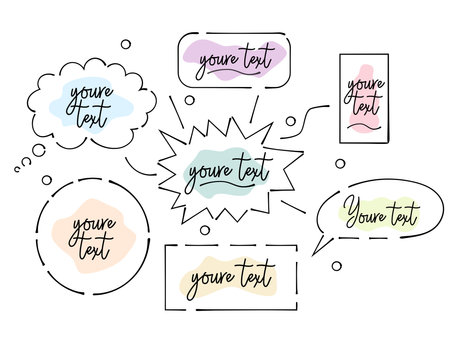 youre text
youre
text
youre
text
youre text
Youre text
youre
text
youre text